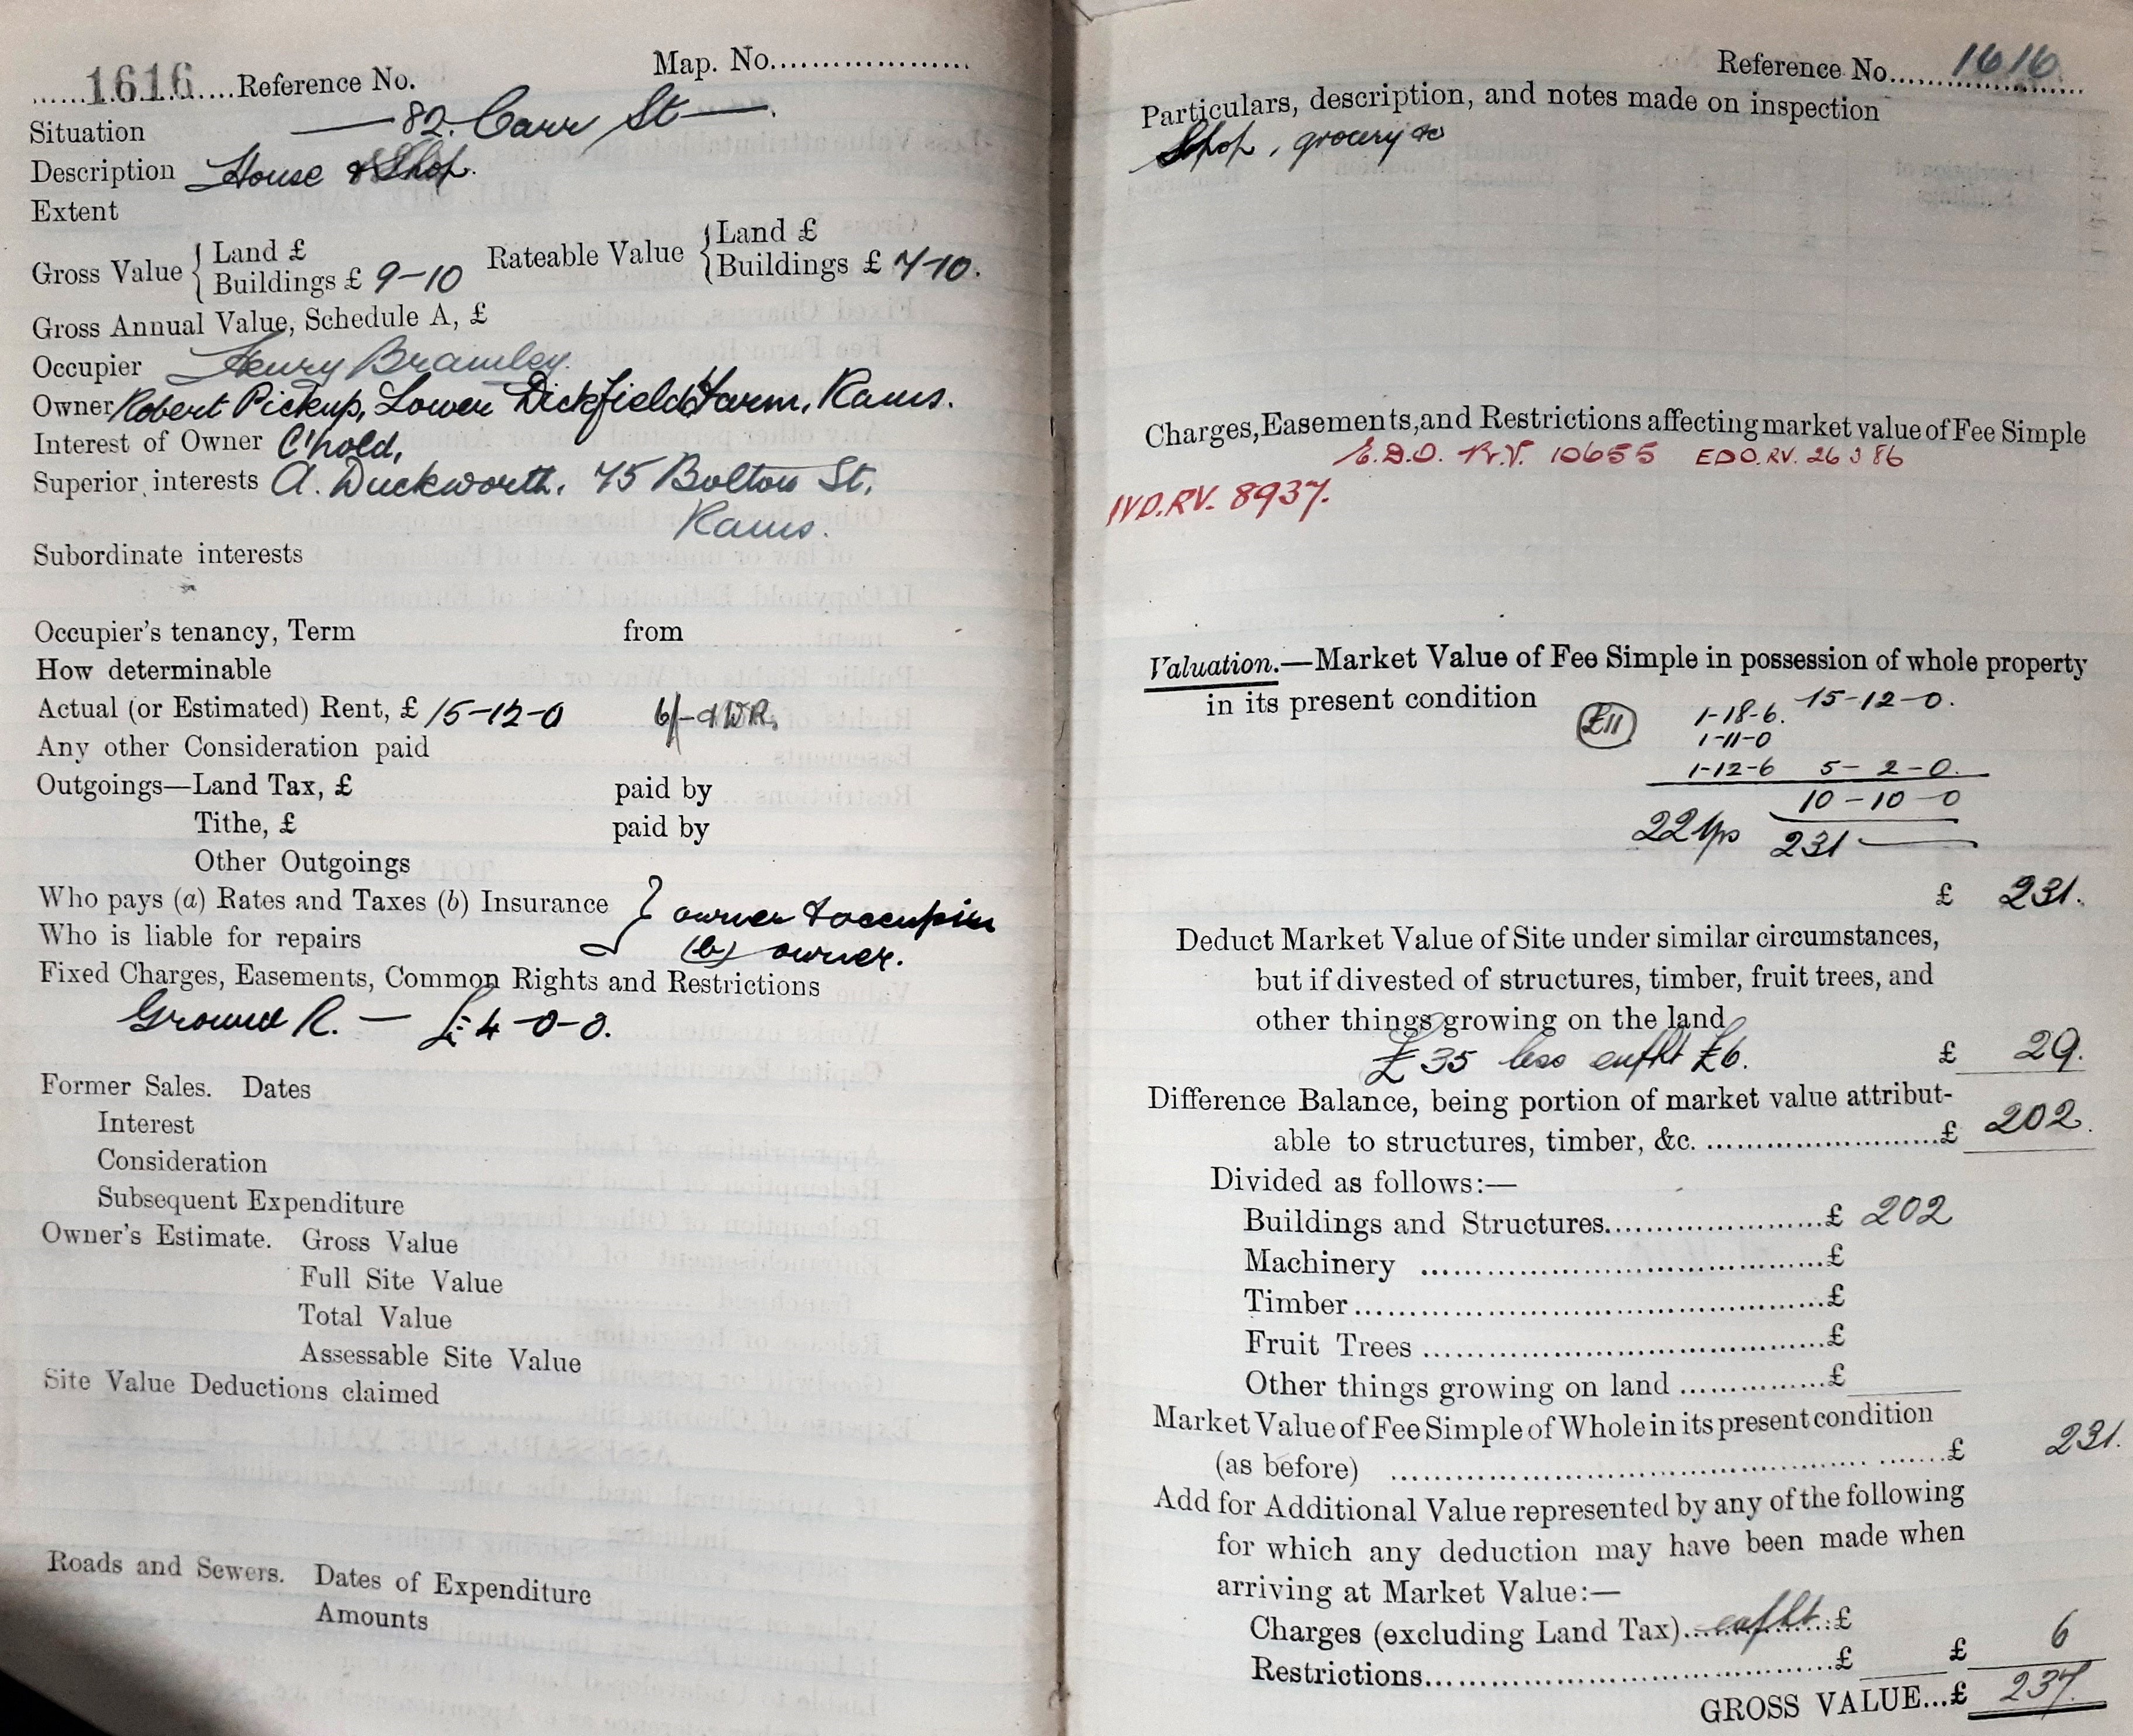 1616 Reference No. Map. No.
Situation — 82. Carr St —
Description House & Shop.
Extent
Gross Value { Land £ Rateable Value { Land £
Buildings £ 9-10 Buildings £ 7-10.
Gross Annual Value, Schedule A, £
Occupier Henry Bramley.
Owner Robert Pickup, Lower Dickfield Farm, Rams.
Interest of Owner C'hold,
Superior interests A. Duckworth, 75 Bolton St,
Rams.
Subordinate interests
Occupier's tenancy, Term from
How determinable
Actual (or Estimated) Rent, £ 15-12-0 6/- & WR.
Any other Consideration paid
Outgoings—Land Tax, £ paid by
Tithe, £ paid by
Other Outgoings
Who pays (a) Rates and Taxes (b) Insurance } owner & occupier
Who is liable for repairs (b) owner.
Fixed Charges, Easements, Common Rights and Restrictions
Ground R. — £4-0-0.
Former Sales. Dates
Interest
Consideration
Subsequent Expenditure
Owner's Estimate. Gross Value
Full Site Value
Total Value
Assessable Site Value
Site Value Deductions claimed
Roads and Sewers. Dates of Expenditure
Amounts
Reference No. 1616
Particulars, description, and notes made on inspection
Shop, grocery &c
Charges, Easements, and Restrictions affecting market value of Fee Simple
E.D.O. R.V. 10655 EDO. RV. 26386
IVD. RV. 8937.
Valuation.—Market Value of Fee Simple in possession of whole property
in its present condition
£11 1-18-6. 15-12-0.
1-11-0
1-12-6 5-2-0.
10-10-0
22 yps 231 —
£ 231.
Deduct Market Value of Site under similar circumstances,
but if divested of structures, timber, fruit trees, and
other things growing on the land
£35 less enfht £6. £ 29.
Difference Balance, being portion of market value attribut-
able to structures, timber, &c. £ 202.
Divided as follows:—
Buildings and Structures £ 202
Machinery £
Timber £
Fruit Trees £
Other things growing on land £
Market Value of Fee Simple of Whole in its present condition
(as before) £ 231.
Add for Additional Value represented by any of the following
for which any deduction may have been made when
arriving at Market Value:—
Charges (excluding Land Tax) enfht. £
Restrictions £ £ 6
GROSS VALUE...£ 237.